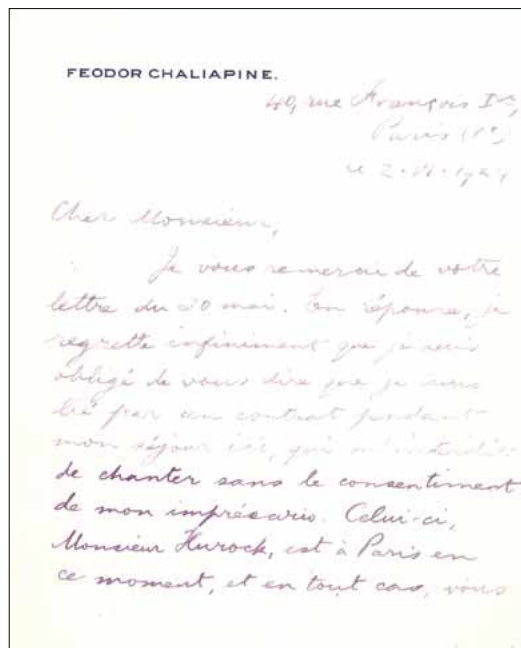 FEODOR CHALIAPINE.
40, rue François Ier,
Paris
Cher Monsieur,
Je vous remercie de votre
lettre du 20 mai. En réponse, je
regrette infiniment que je suis
obligé de vous dire que je suis
lié par un contrat pendant
mon séjour ici, qui
de chanter sans le consentiment
de mon imprésario. Celui-ci,
Monsieur Hurock, est à Paris en
ce moment, et en tout cas, vous